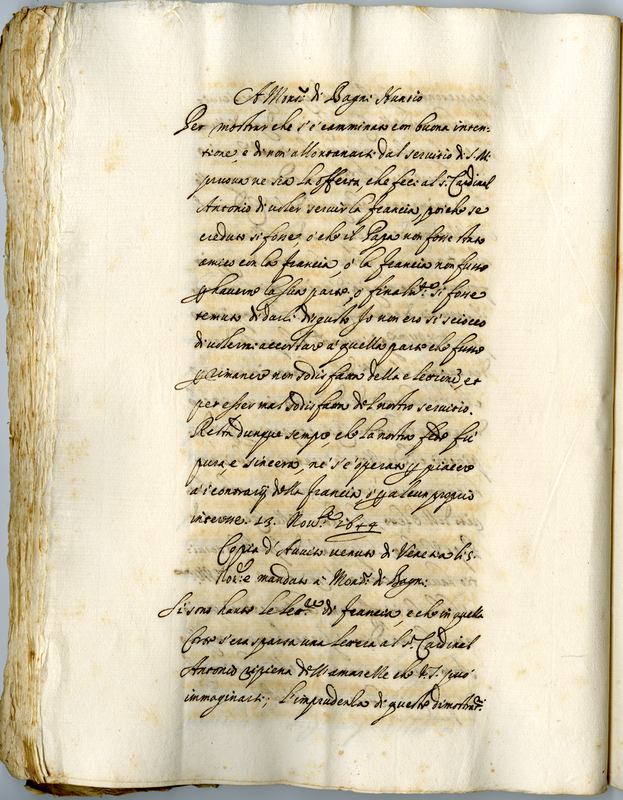 A Mons.r di Bagni Nuntio
Per mostrar che s'è camminato con buona inten-
tione, e di non allontanarsi dal servitio di S. M.
pruova ne sia la offerta, che feci al s.r Cardinal
Antonio di voler servir la francia, poiche se
creduto si fosse ò che il Papa non fosse stato
amico con la francia, ò la francia non fusse
p haverne la sua parte, ò finalm.te si fosse
temuto di darli disgusto Io non ero sì sciocco
di volermi accostare à quella parte che fusse
p rimanere non sodisfatta della elettione, et
per esser mal sodisfatta del nostro servitio.
Resta dunque sempre che la nostra fede fù
pura e sincera, ne s'è operato p piacere
a i contrarij della francia, ò p alcun proprio
interesse. 23. Nov.re 1644
Copia d'Aviso venuto di Venetia li 5.
Nov.e e mandato a Mons.r di Bagni
Si sono havute le lett.re di francia, e che in quella
Corte s'era sparsa una lettera al s.r Cardinal
Antonio ripiena dell'amarelle che V. S. può
immaginarsi; l'imprudenza di queste dimostrat.